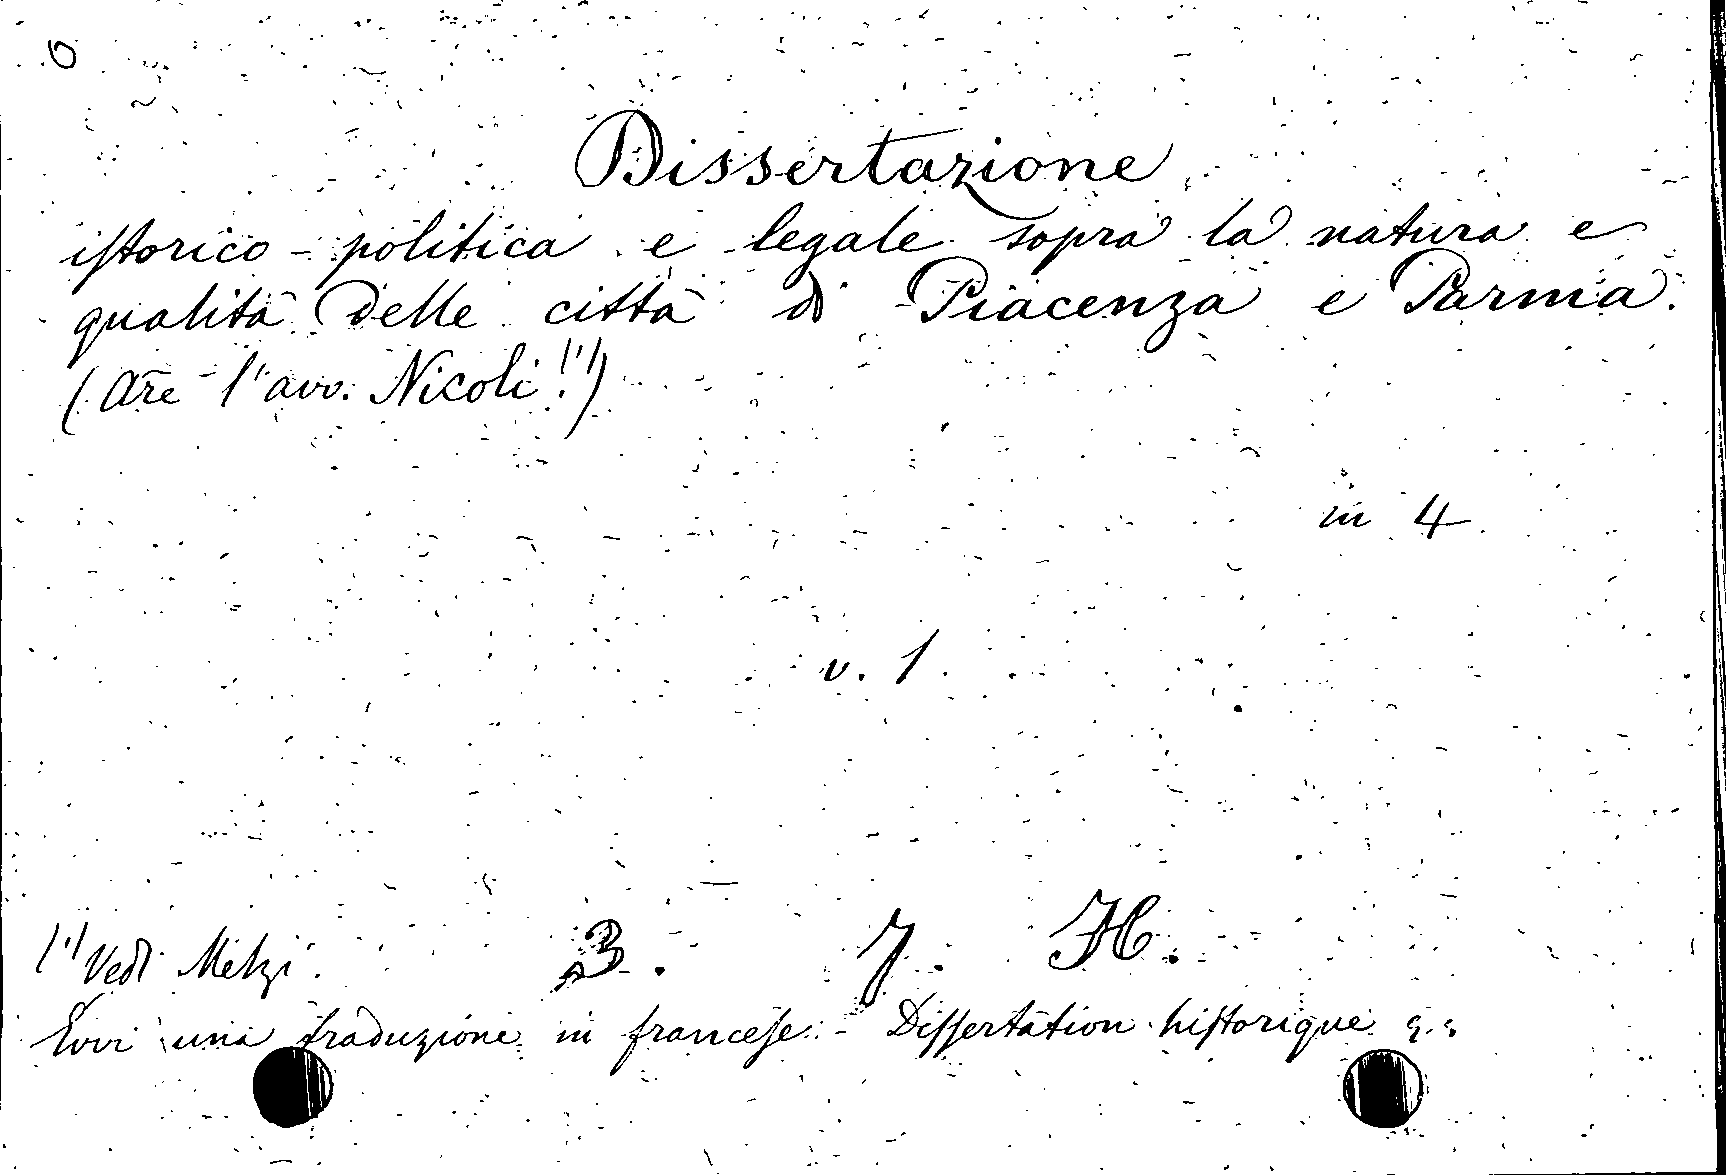 Dissertazione
istorico-politica e legale sopra la natura e
qualità delle città di Piacenza e Parma.
(l'avv. Nicoli (1))
in 4
v. 1.
(1) Vedi Melzi.
3. 7. H.
Evvi una traduzione in francese: - Dissertation historique